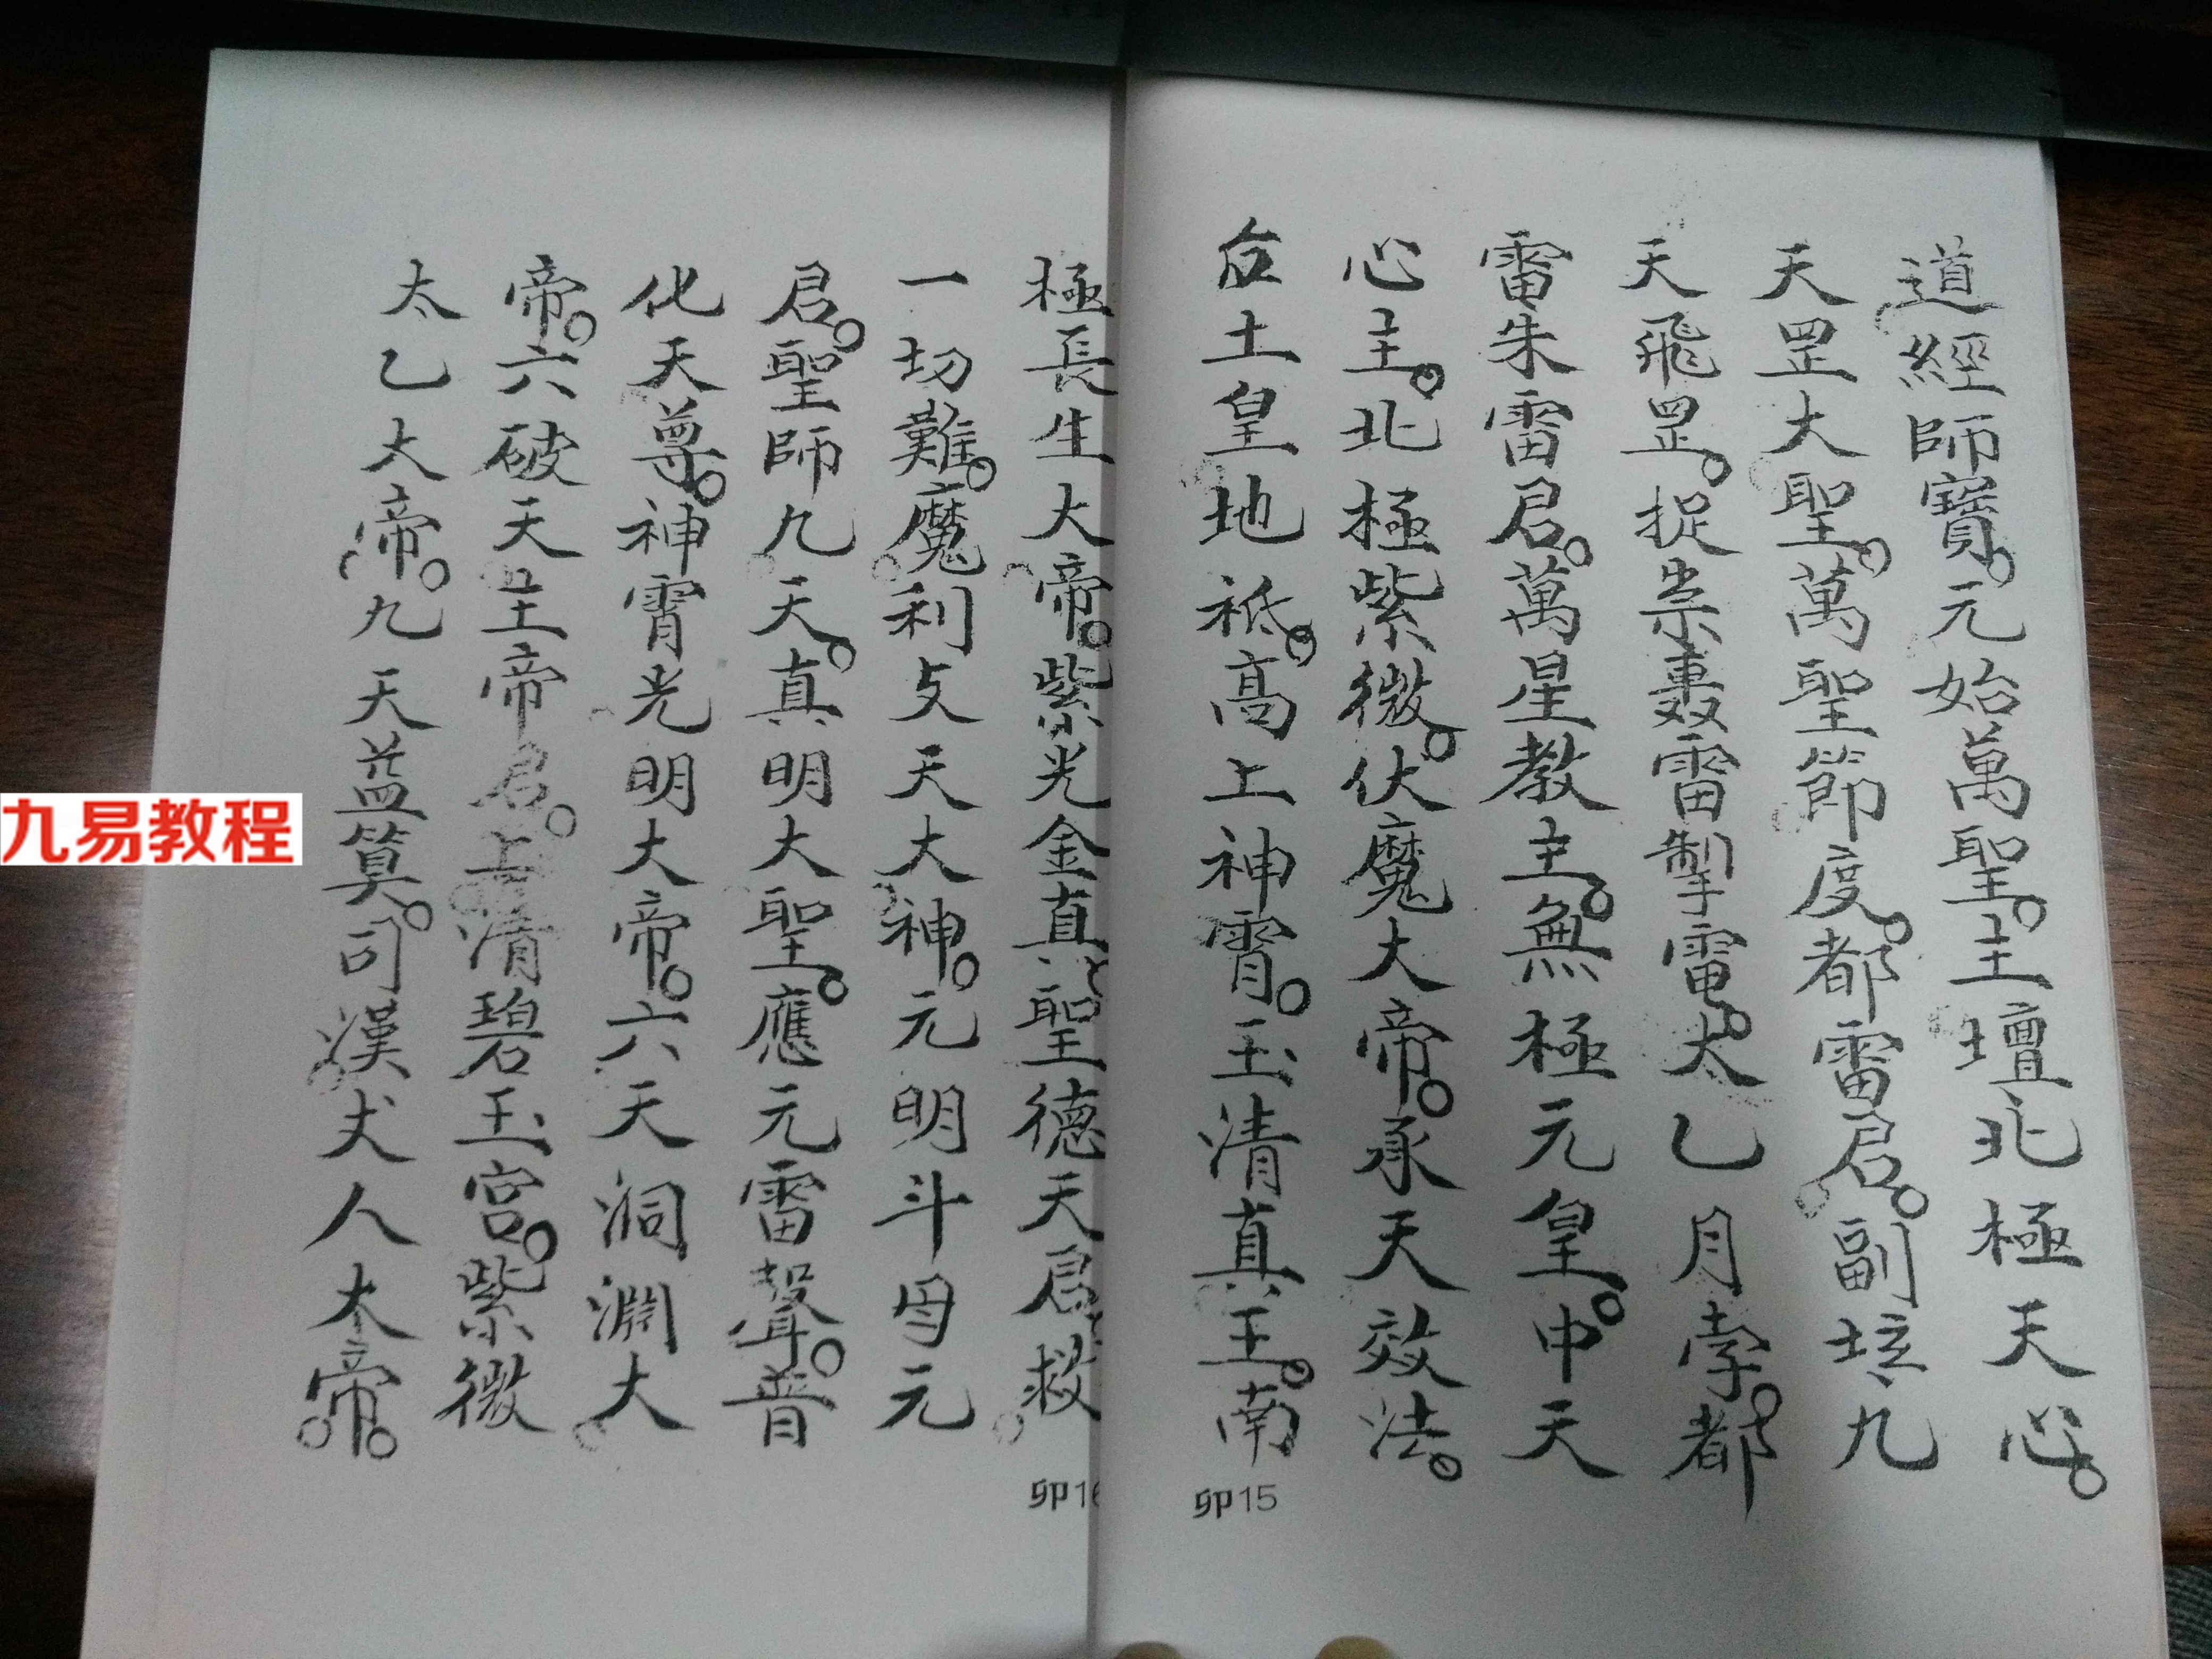 道經師寶。元始萬聖。主壇北極天心。
天罡大聖。萬聖節度。都雷君。副壇九
天飛罡。捉祟轟雷掣電。太乙月孛。都
雷朱雷君。萬星教主。無極元皇。中天
心主。北極紫微。伏魔大帝。承天效法。
后土皇地祇。高上神霄。玉清真王。南
卯15
極長生大帝。紫光金真。聖德天君。救
一切難。魔利支天大神。元明斗母元
君。聖師九天。真明大聖。應元雷聲。普
化天尊。神霄光明大帝。六天洞淵大
帝。六破天主帝君。上清碧玉宮。紫微
太乙大帝。九天益算。司漢丈人大帝。
卯16
九易教程